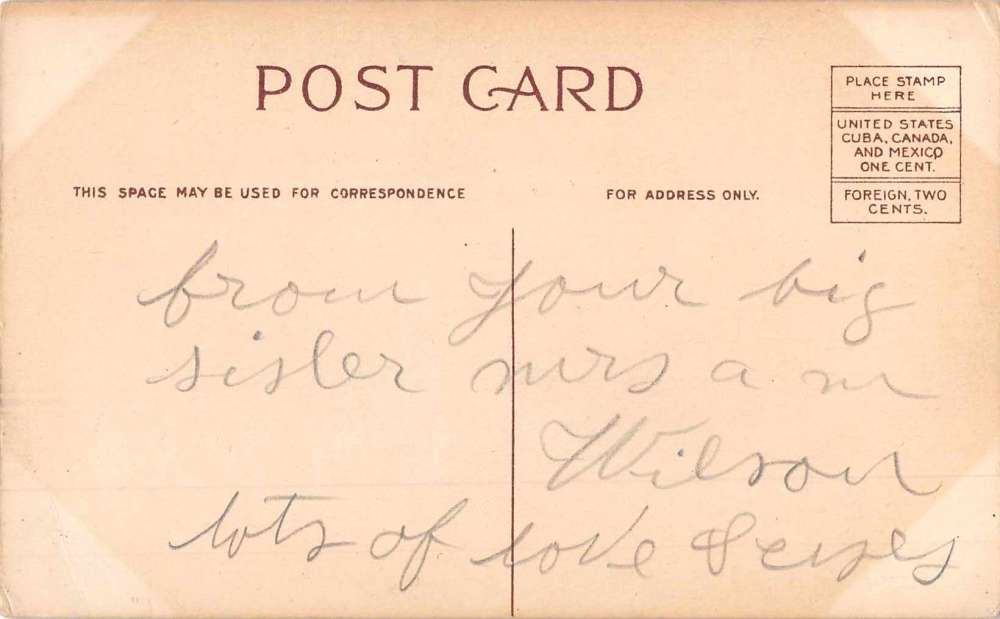 POST CARD
PLACE STAMP
HERE
UNITED STATES
CUBA, CANADA,
AND MEXICO
ONE CENT.
FOREIGN, TWO
CENTS.
THIS SPACE MAY BE USED FOR CORRESPONDENCE
FOR ADDRESS ONLY.
from your big
sister mrs a m
Wilson
lots of love &